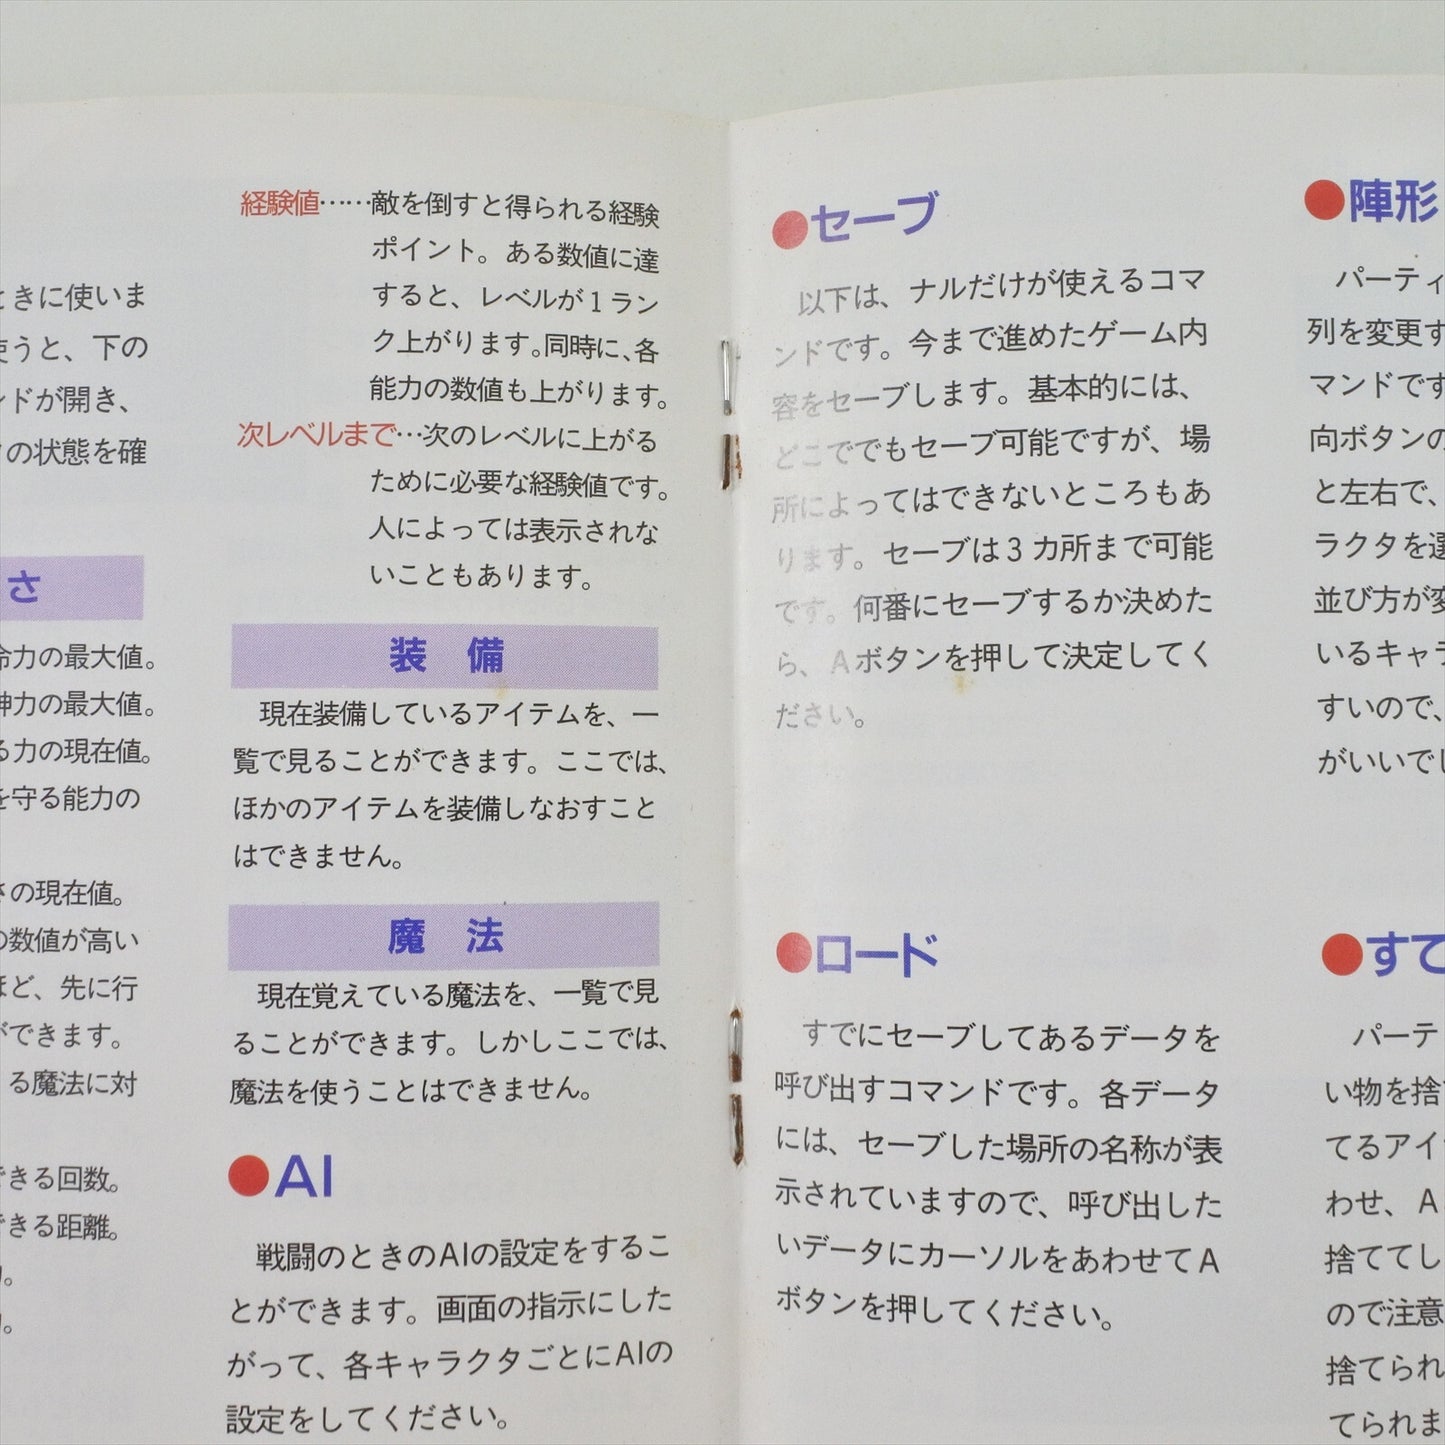 ときに使いま
使うと、下の
ンドが開き、
の状態を確
さ
命力の最大値。
神力の最大値。
る力の現在値。
を守る能力の
さの現在値。
の数値が高い
ほど、先に行
ができます。
る魔法に対
できる回数。
できる距離。
経験値……敵を倒すと得られる経験
ポイント。ある数値に達
すると、レベルが1ラン
ク上がります。同時に、各
能力の数値も上がります。
次レベルまで…次のレベルに上がる
ために必要な経験値です。
人によっては表示されな
いこともあります。
装備
現在装備しているアイテムを、一
覧で見ることができます。ここでは、
ほかのアイテムを装備しなおすこと
はできません。
魔法
現在覚えている魔法を、一覧で見
ることができます。しかしここでは、
魔法を使うことはできません。
●AI
戦闘のときのAIの設定をするこ
とができます。画面の指示にした
がって、各キャラクタごとにAIの
設定をしてください。
●セーブ
以下は、ナルだけが使えるコマ
ンドです。今まで進めたゲーム内
容をセーブします。基本的には、
どこででもセーブ可能ですが、場
所によってはできないところもあ
ります。セーブは3カ所まで可能
です。何番にセーブするか決めた
ら、Aボタンを押して決定してく
ださい。
●ロード
すでにセーブしてあるデータを
呼び出すコマンドです。各データ
には、セーブした場所の名称が表
示されていますので、呼び出した
いデータにカーソルをあわせてA
ボタンを押してください。
●陣形
パーティ
列を変更す
マンドです
向ボタンの
と左右で、
ラクタを選
並び方が変
いるキャラ
すいので、
がいいでし
●すて
パーテ
い物を捨て
てるアイ
わせ、A
捨ててし
ので注意
捨てられ
てられま